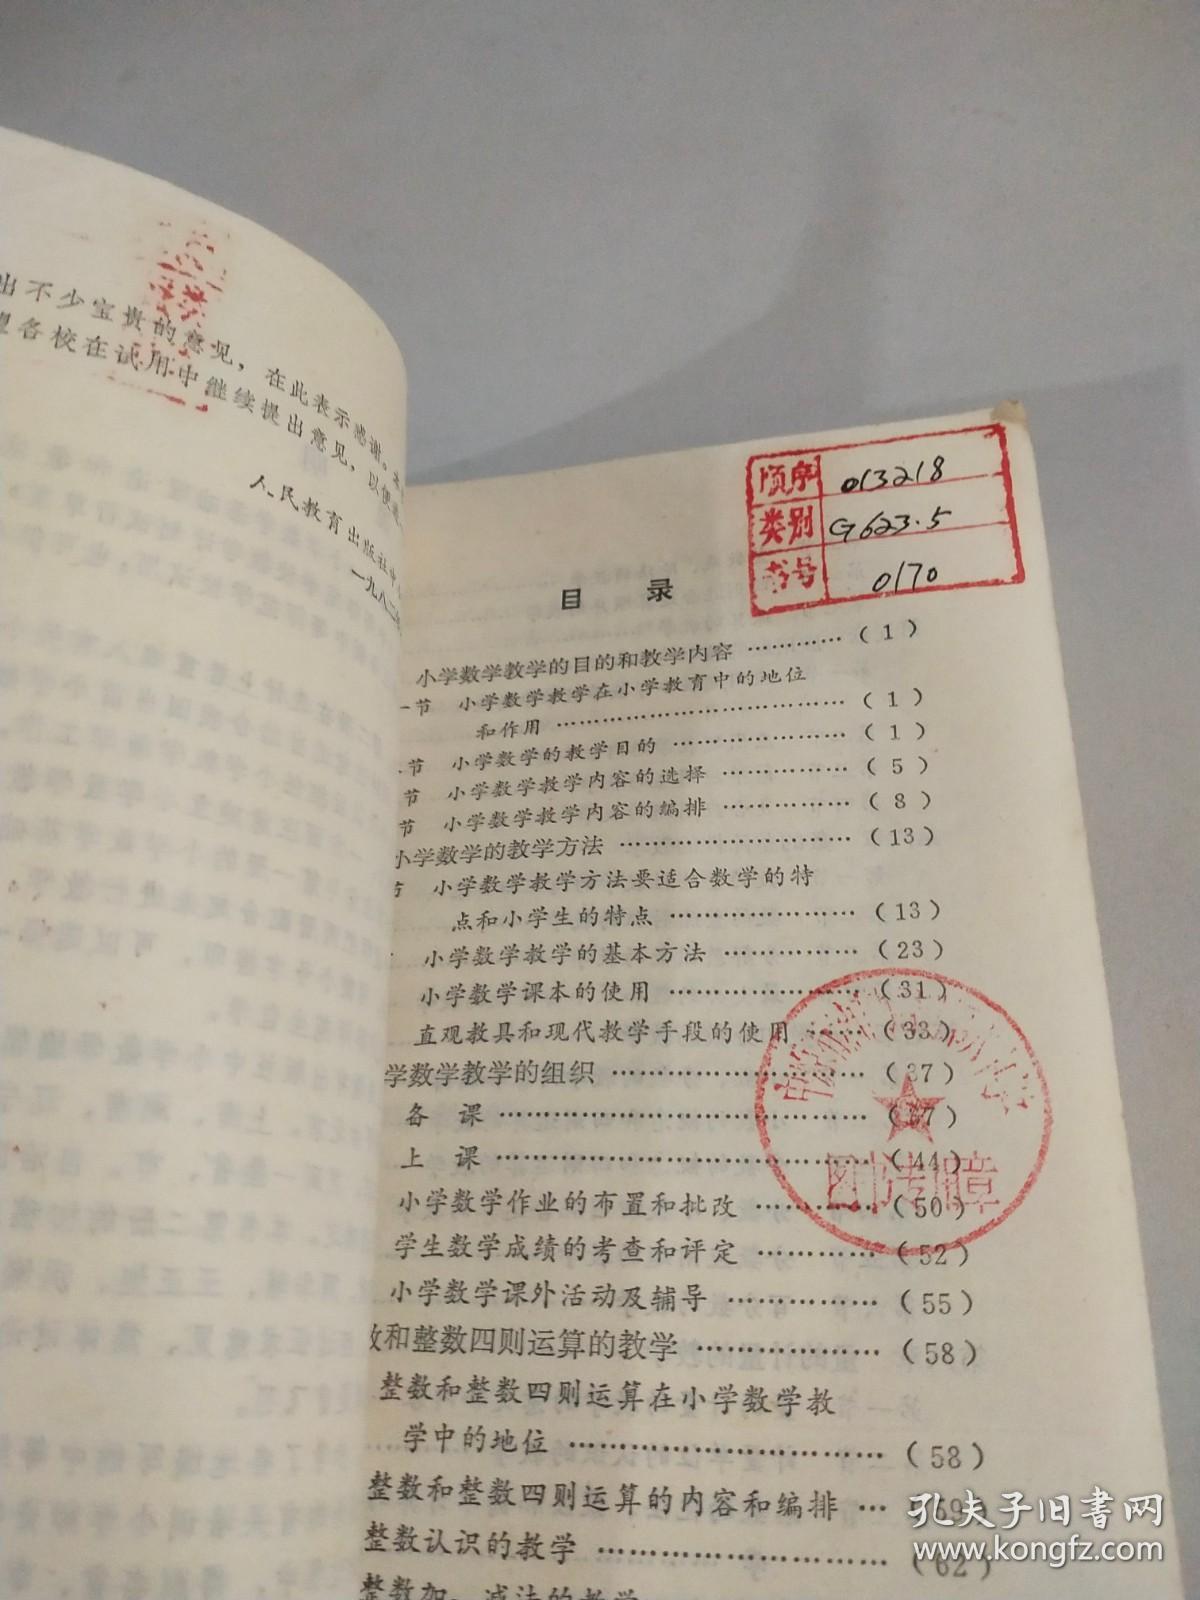 出不少宝贵的意见，在此表示感谢。
望各校在试用中继续提出意见，以便
人民教育出版社
一九八二
顺序 013218
类别 G623.5
书号 0170
目 录
小学数学教学的目的和教学内容 …………（1）
一节 小学数学教学在小学教育中的地位
和作用 ………………………………（1）
节 小学数学的教学目的 …………………（1）
节 小学数学教学内容的选择 ……………（5）
节 小学数学教学内容的编排 ……………（8）
小学数学的教学方法 ………………………（13）
节 小学数学教学方法要适合数学的特
点和小学生的特点 …………………（13）
小学数学教学的基本方法 ……………（23）
小学数学课本的使用 …………………（31）
直观教具和现代教学手段的使用 ……（33）
学数学教学的组织 …………………………（37）
备 课 ……………………………………（37）
上 课 ……………………………………（44）
小学数学作业的布置和批改 …………（50）
学生数学成绩的考查和评定 …………（52）
小学数学课外活动及辅导 ……………（55）
数和整数四则运算的教学 …………………（58）
整数和整数四则运算在小学数学教
学中的地位 ……………………………（58）
整数和整数四则运算的内容和编排 …
整数认识的教学 …………………………（62）
整数加、减法的教学
图书专用章
孔夫子旧书网
www.kongfz.com